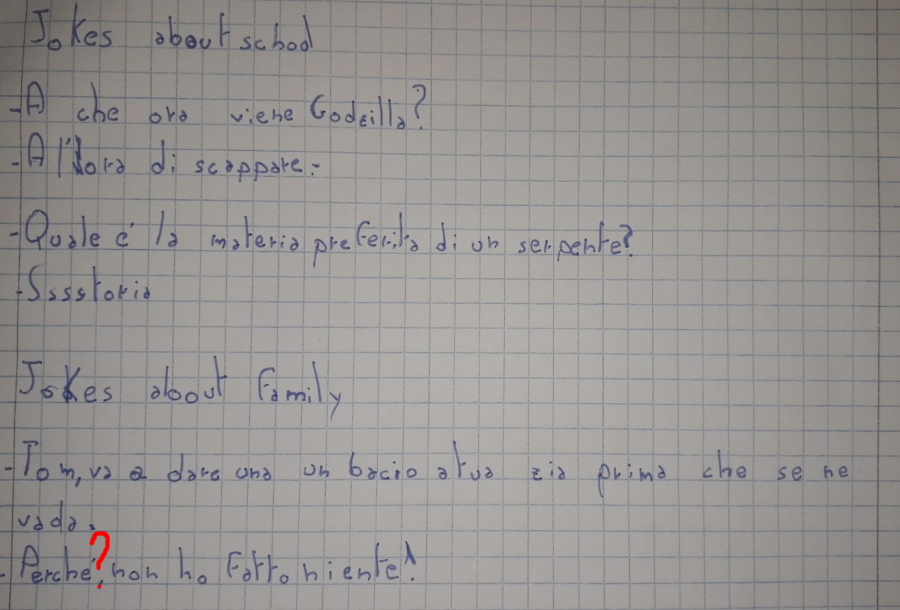 Jokes about school
- A che ora viene Godzilla?
- All'ora di scappare.
- Quale é la materia preferita di un serpente?
- Sssstoria
Jokes about family
- Tom, va a dare una un bacio a tua zia prima che se ne
vada.
- Perché?, non ho fatto niente!